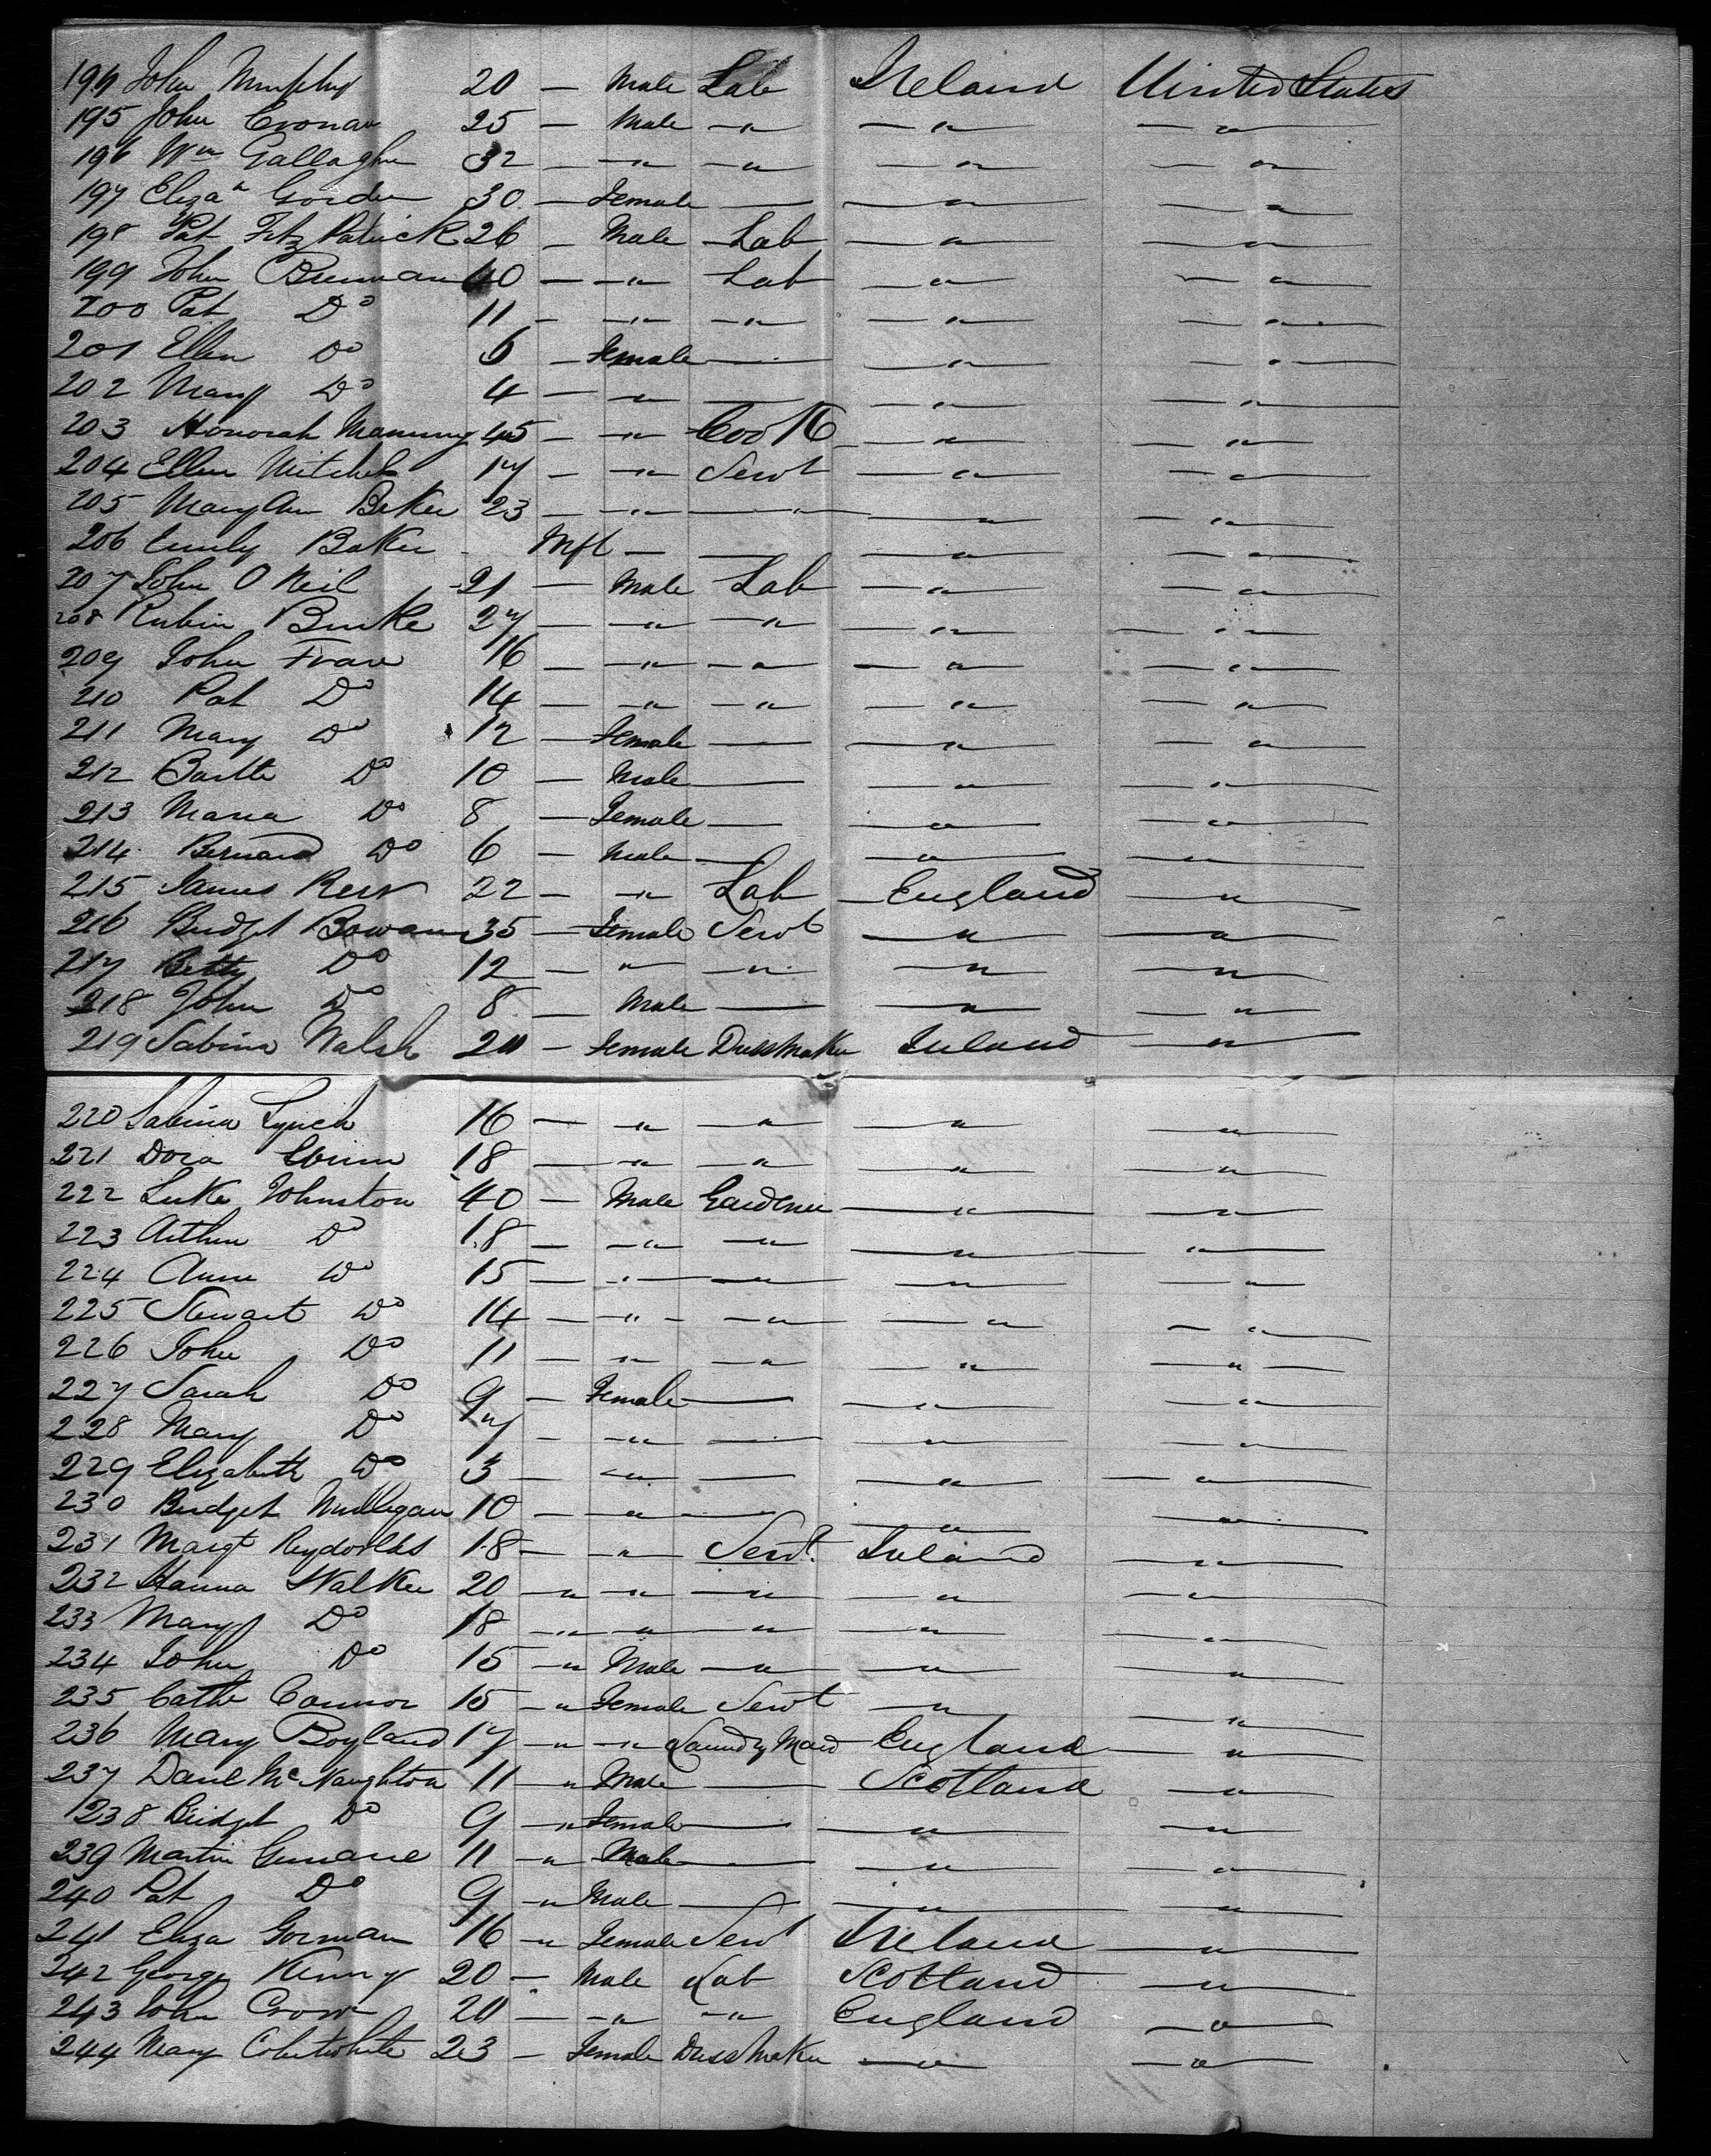 194 John Murphy 20 — Male Lab Ireland United States
195 John Cronan 25 — Male — " — — " — — " —
196 Wm Gallagher 32 — — " — — " — — " — — " —
197 Eliza Gordon 30 — Female — — " — — " —
198 Pat Fitz Patrick 26 — Male Lab — " — — " —
199 John Brennan 40 — — " — Lab — " — — " —
200 Pat Do 11 — — " — — " — — " — — " —
201 Ellen Do 6 — Female — — " — — " —
202 Mary Do 4 — — " — — — " — — " —
203 Honorah Manning 45 — — " — Cook — " — — " —
204 Ellen Mitchel 17 — — " — Servt — " — — " —
205 Mary Ann Beker 23 — — " — — " — — " — — " —
206 Emily Baker Inft — — — " — — " —
207 John O Neil 21 — Male Lab — " — — " —
208 Rubin Burke 27 — — " — — " — — " — — " —
209 John 16 — — " — — " — — " — — " —
210 Pat Do 14 — — " — — " — — " — — " —
211 Mary Do 12 — Female — — " — — " —
212 Do 10 — Male — — " — — " —
213 Maria Do 8 — Female — — " — — " —
214 Bernard Do 6 — Male — — " — — " —
215 James Kerr 22 — — " — Lab England — " —
216 Bridget Bowan 35 — Female Servt — " — — " —
217 Betty Do 12 — — " — — " — — " — — " —
218 John Do 8 — Male — — " — — " —
219 Sabina Walsh 20 — Female Dressmaker Ireland — " —
220 Sabina Lynch 16 — — " — — " — — " — — " —
221 Dora 18 — — " — — " — — " — — " —
222 Luke Johnston 40 — Male Gardener — " — — " —
223 Arthur Do 18 — — " — — " — — " — — " —
224 Anne Do 15 — — " — — " — — " — — " —
225 Stewart Do 14 — — " — — " — — " — — " —
226 John Do 11 — — " — — " — — " — — " —
227 Sarah Do 9 — Female — — " — — " —
228 Mary Do 7 — — " — — — " — — " —
229 Elizabeth Do 3 — — " — — — " — — " —
230 Bridget Mulligan 10 — — " — — — " — — " —
231 Margt Reynolds 18 — — " — Servt Ireland — " —
232 Hanna Walker 20 — " — " — — " — — " — — " —
233 Mary Do 18 — " — " — — " — — " — — " —
234 John Do 15 — " Male — " — — " — — " —
235 Cathe Connor 15 — " Female Servt — " — — " —
236 Mary Boyland 17 — " — " Laundry Maid England — " —
237 Danl McNaughton 11 — " Male — Scotland — " —
238 Bridget Do 9 — " Female — — " — — " —
239 Martin 11 — " Male — — " — — " —
240 Pat Do 9 — " Male — — " — — " —
241 Eliza Gorman 16 — " Female Servt Ireland — " —
242 George Kenny 20 — Male Lab Scotland — " —
243 John Crow 20 — — " — — " — England — " —
244 Mary 23 — Female Dressmaker — " — — " —